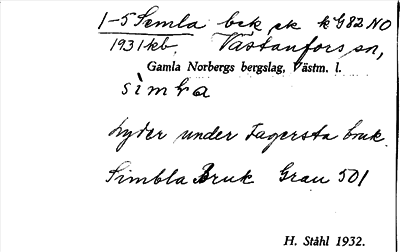 1-5 Semla bek ek k G82 NO
1931 kb. Västanfors sn,
Gamla Norbergs bergslag, Västm. l.
simba
lyder under Fagersta bruk.
Simbla Bruk Grau 501
H. Ståhl 1932.